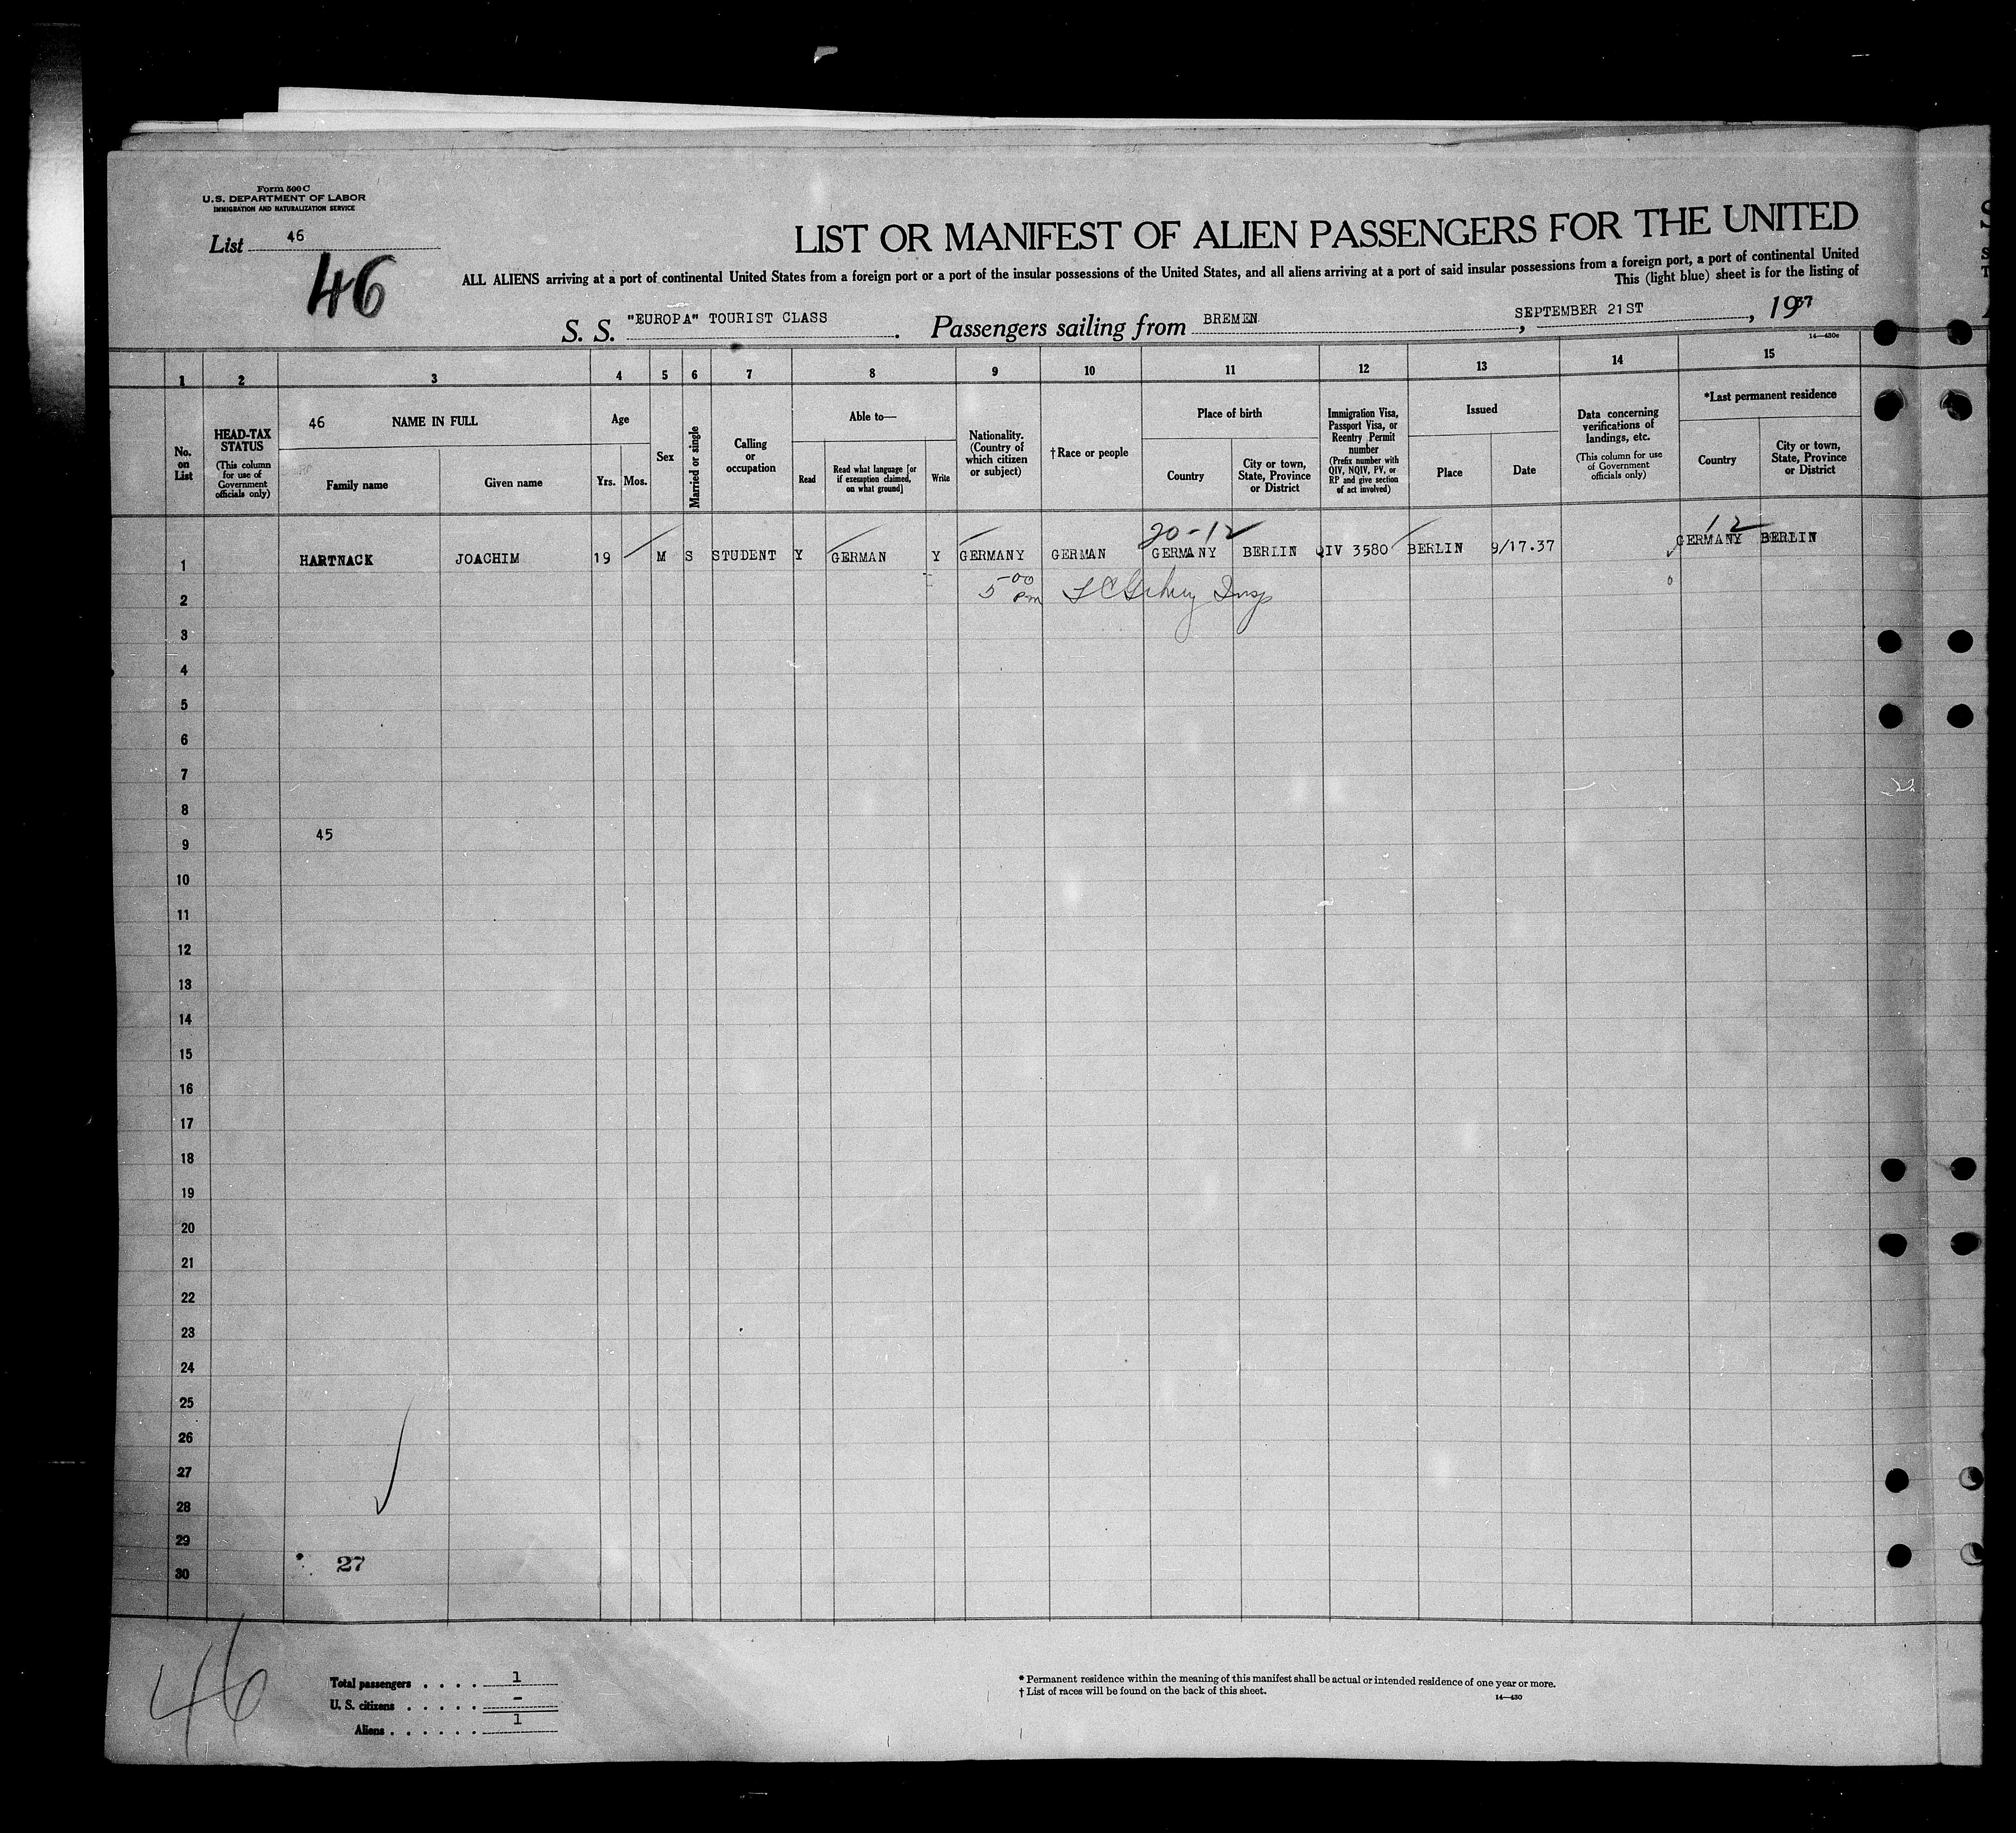 Form 500 C
U.S. DEPARTMENT OF LABOR
IMMIGRATION AND NATURALIZATION SERVICE
List 46
46
LIST OR MANIFEST OF ALIEN PASSENGERS FOR THE UNITED
ALL ALIENS arriving at a port of continental United States from a foreign port or a port of the insular possessions of the United States, and all aliens arriving at a port of said insular possessions from a foreign port, a port of continental United
This (light blue) sheet is for the listing of
S. S. "EUROPA" TOURIST CLASS. Passengers sailing from BREMEN, SEPTEMBER 21ST, 1937
14—430c
1 2 3 4 5 6 7 8 9 10 11 12 13 14 15
No. on List
HEAD-TAX STATUS
(This column for use of Government officials only)
46 NAME IN FULL
Family name
Given name
Age
Yrs. Mos.
Sex
Married or single
Calling or occupation
Able to—
Read
Read what language [or if exemption claimed, on what ground]
Write
Nationality. (Country of which citizen or subject)
†Race or people
Place of birth
Country
City or town, State, Province or District
Immigration Visa, Passport Visa, or Reentry Permit number
(Prefix number with QIV, NQIV, PV, or RP and give section of act involved)
Issued
Place
Date
Data concerning verifications of landings, etc.
(This column for use of Government officials only)
*Last permanent residence
Country
City or town, State, Province or District
20-12 12
1 HARTNACK JOACHIM 19 M S STUDENT Y GERMAN Y GERMANY GERMAN GERMANY BERLIN QIV 3580 BERLIN 9/17.37 GERMANY BERLIN
2 5 00 Pm Insp
3
4
5
6
7
8
45
9
10
11
12
13
14
15
16
17
18
19
20
21
22
23
24
25
26
27
28
29
27
30
46
Total passengers . . . . 1
U. S. citizens . . . . . –
Aliens . . . . . . 1
* Permanent residence within the meaning of this manifest shall be actual or intended residence of one year or more.
† List of races will be found on the back of this sheet.
14—430